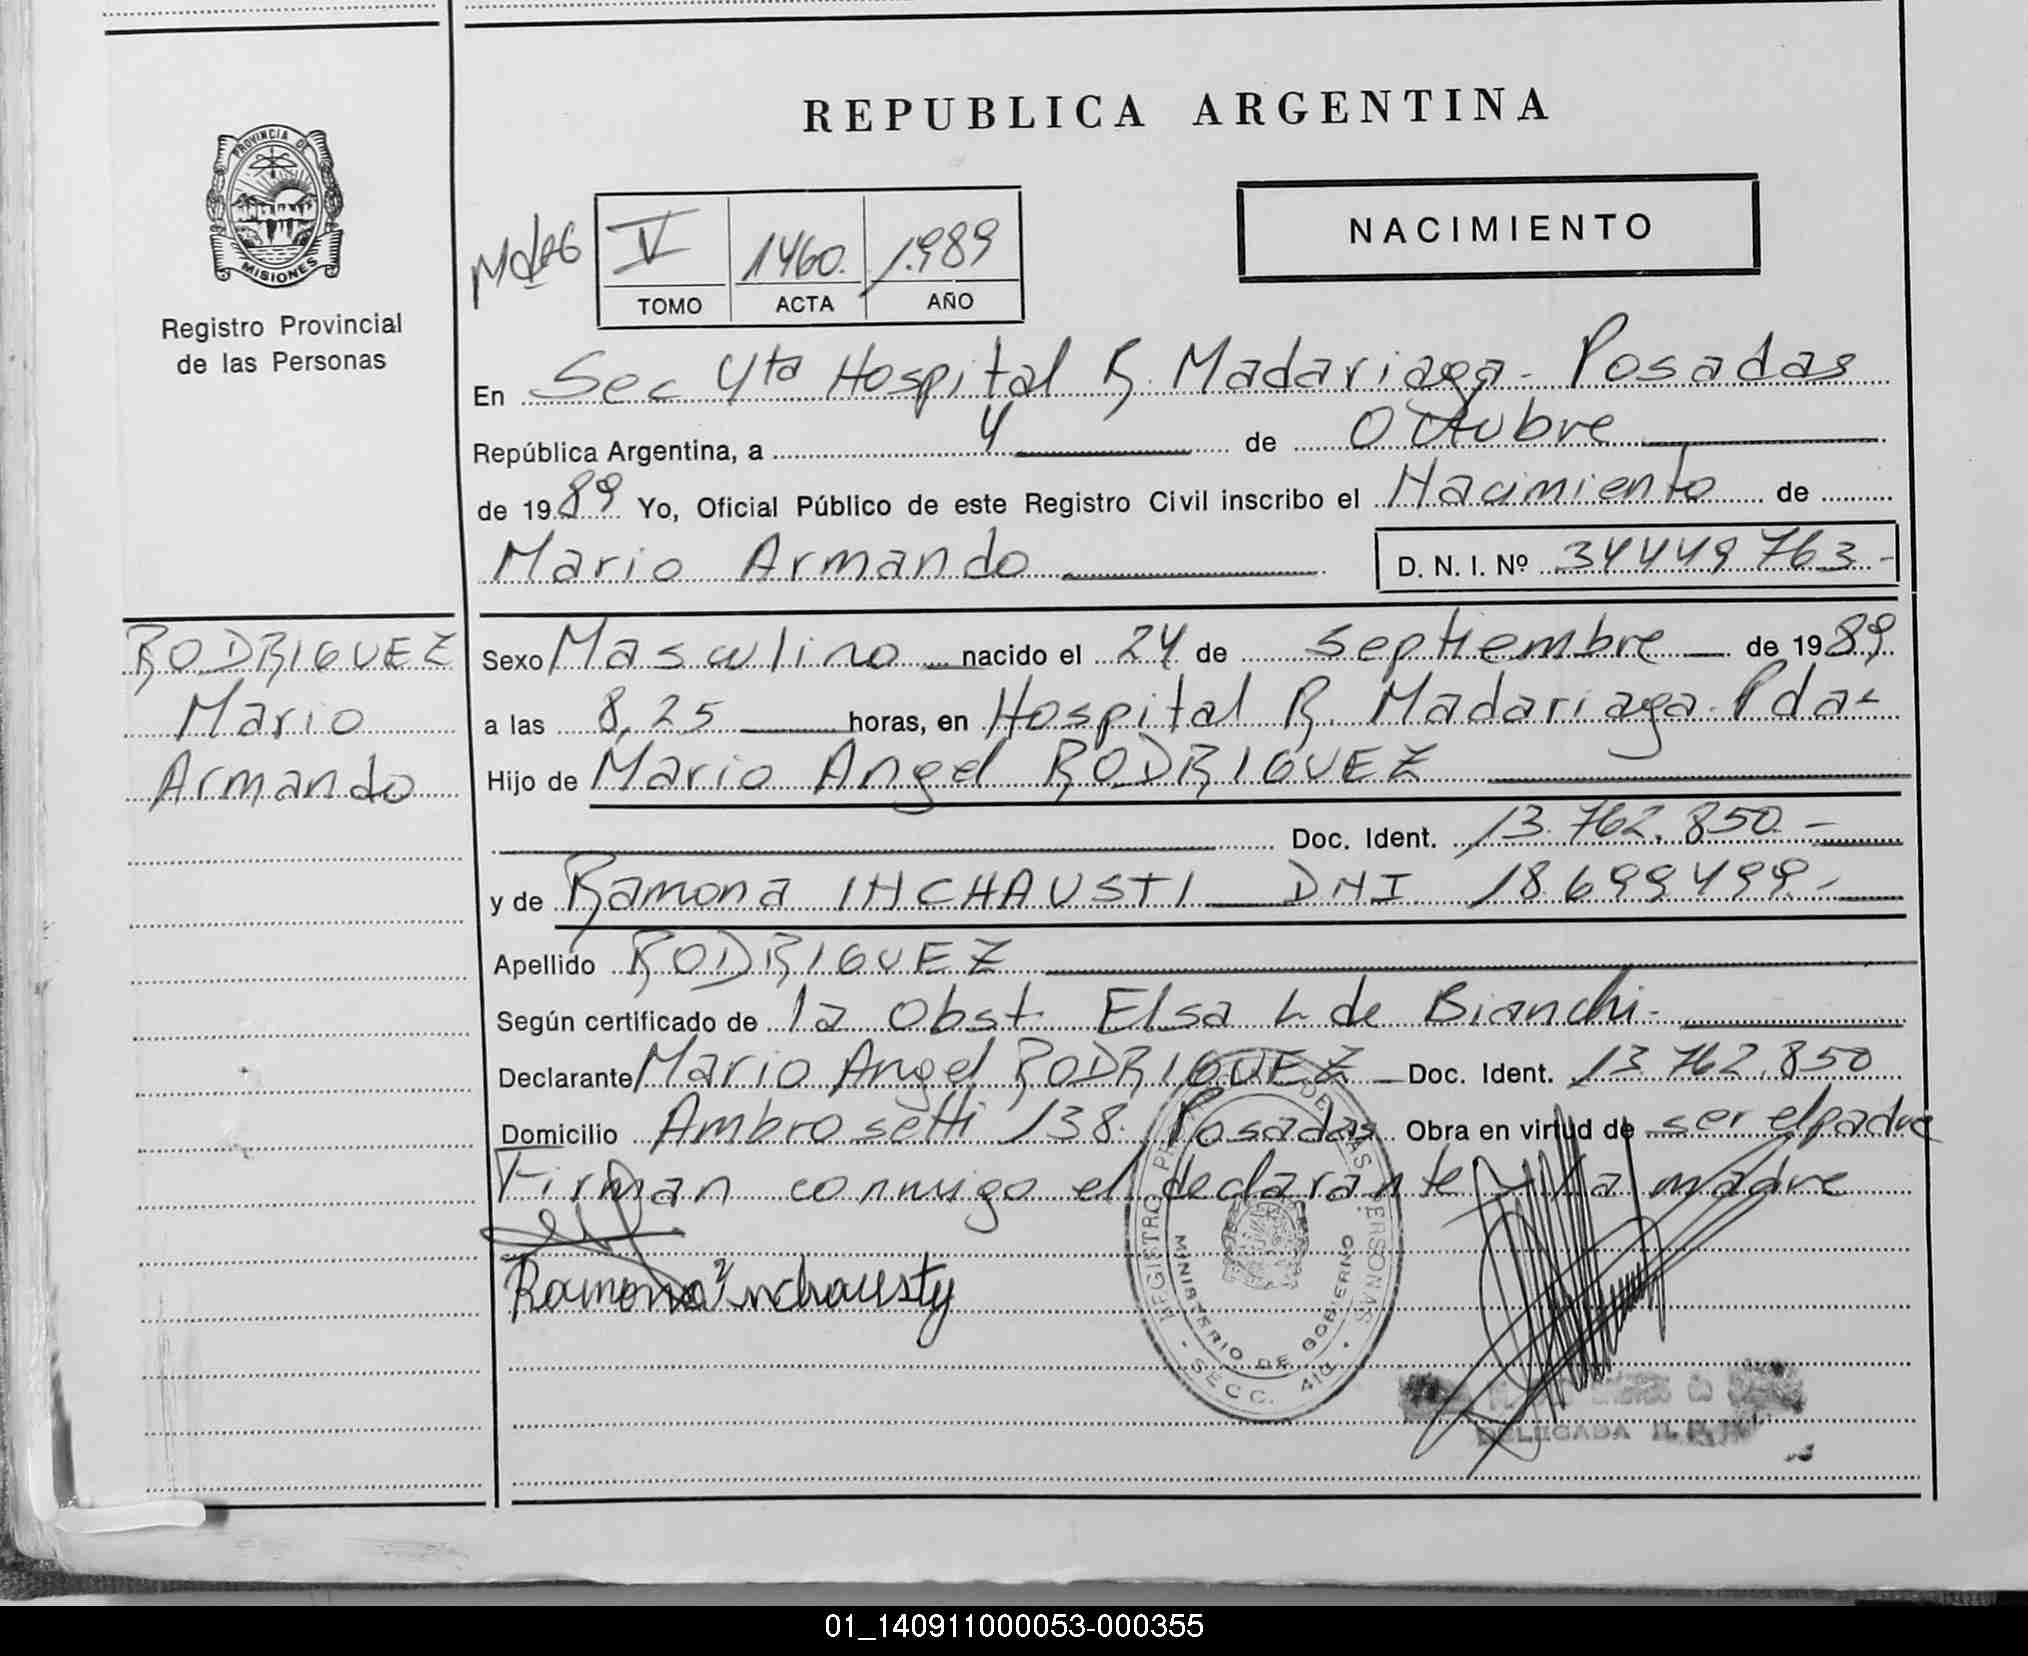 REPUBLICA ARGENTINA
PROVINCIA DE
MISIONES
Registro Provincial
de las Personas
V 1460. 1.989
TOMO ACTA AÑO
NACIMIENTO
En Sec 4ta Hospital R. Madariaga - Posadas
República Argentina, a 4 de Octubre
de 1989 Yo, Oficial Público de este Registro Civil inscribo el Nacimiento de
Mario Armando D. N. I. Nº 34449763-
RODRIGUEZ
Mario
Armando
Sexo Masculino nacido el 24 de septiembre de 1989
a las 8,25 horas, en Hospital R. Madariaga. Pdas
Hijo de Mario Angel RODRIGUEZ
Doc. Ident. 13.762.850.-
y de Ramona INCHAUSTI DNI 18.699.499.-
Apellido RODRIGUEZ
Según certificado de la Obst. Elsa L de Bianchi.-
Declarante Mario Angel RODRIGUEZ Doc. Ident. 13.762.850
Domicilio Ambrosetti 138. Posadas Obra en virtud de ser el padre
Firman conmigo el declarante y la madre
Ramona Inchausty
REGISTRO DE LAS PERSONAS
MINISTERIO DE GOBIERNO
- SECC. 4ta -
DELEGADA
01_140911000053-000355